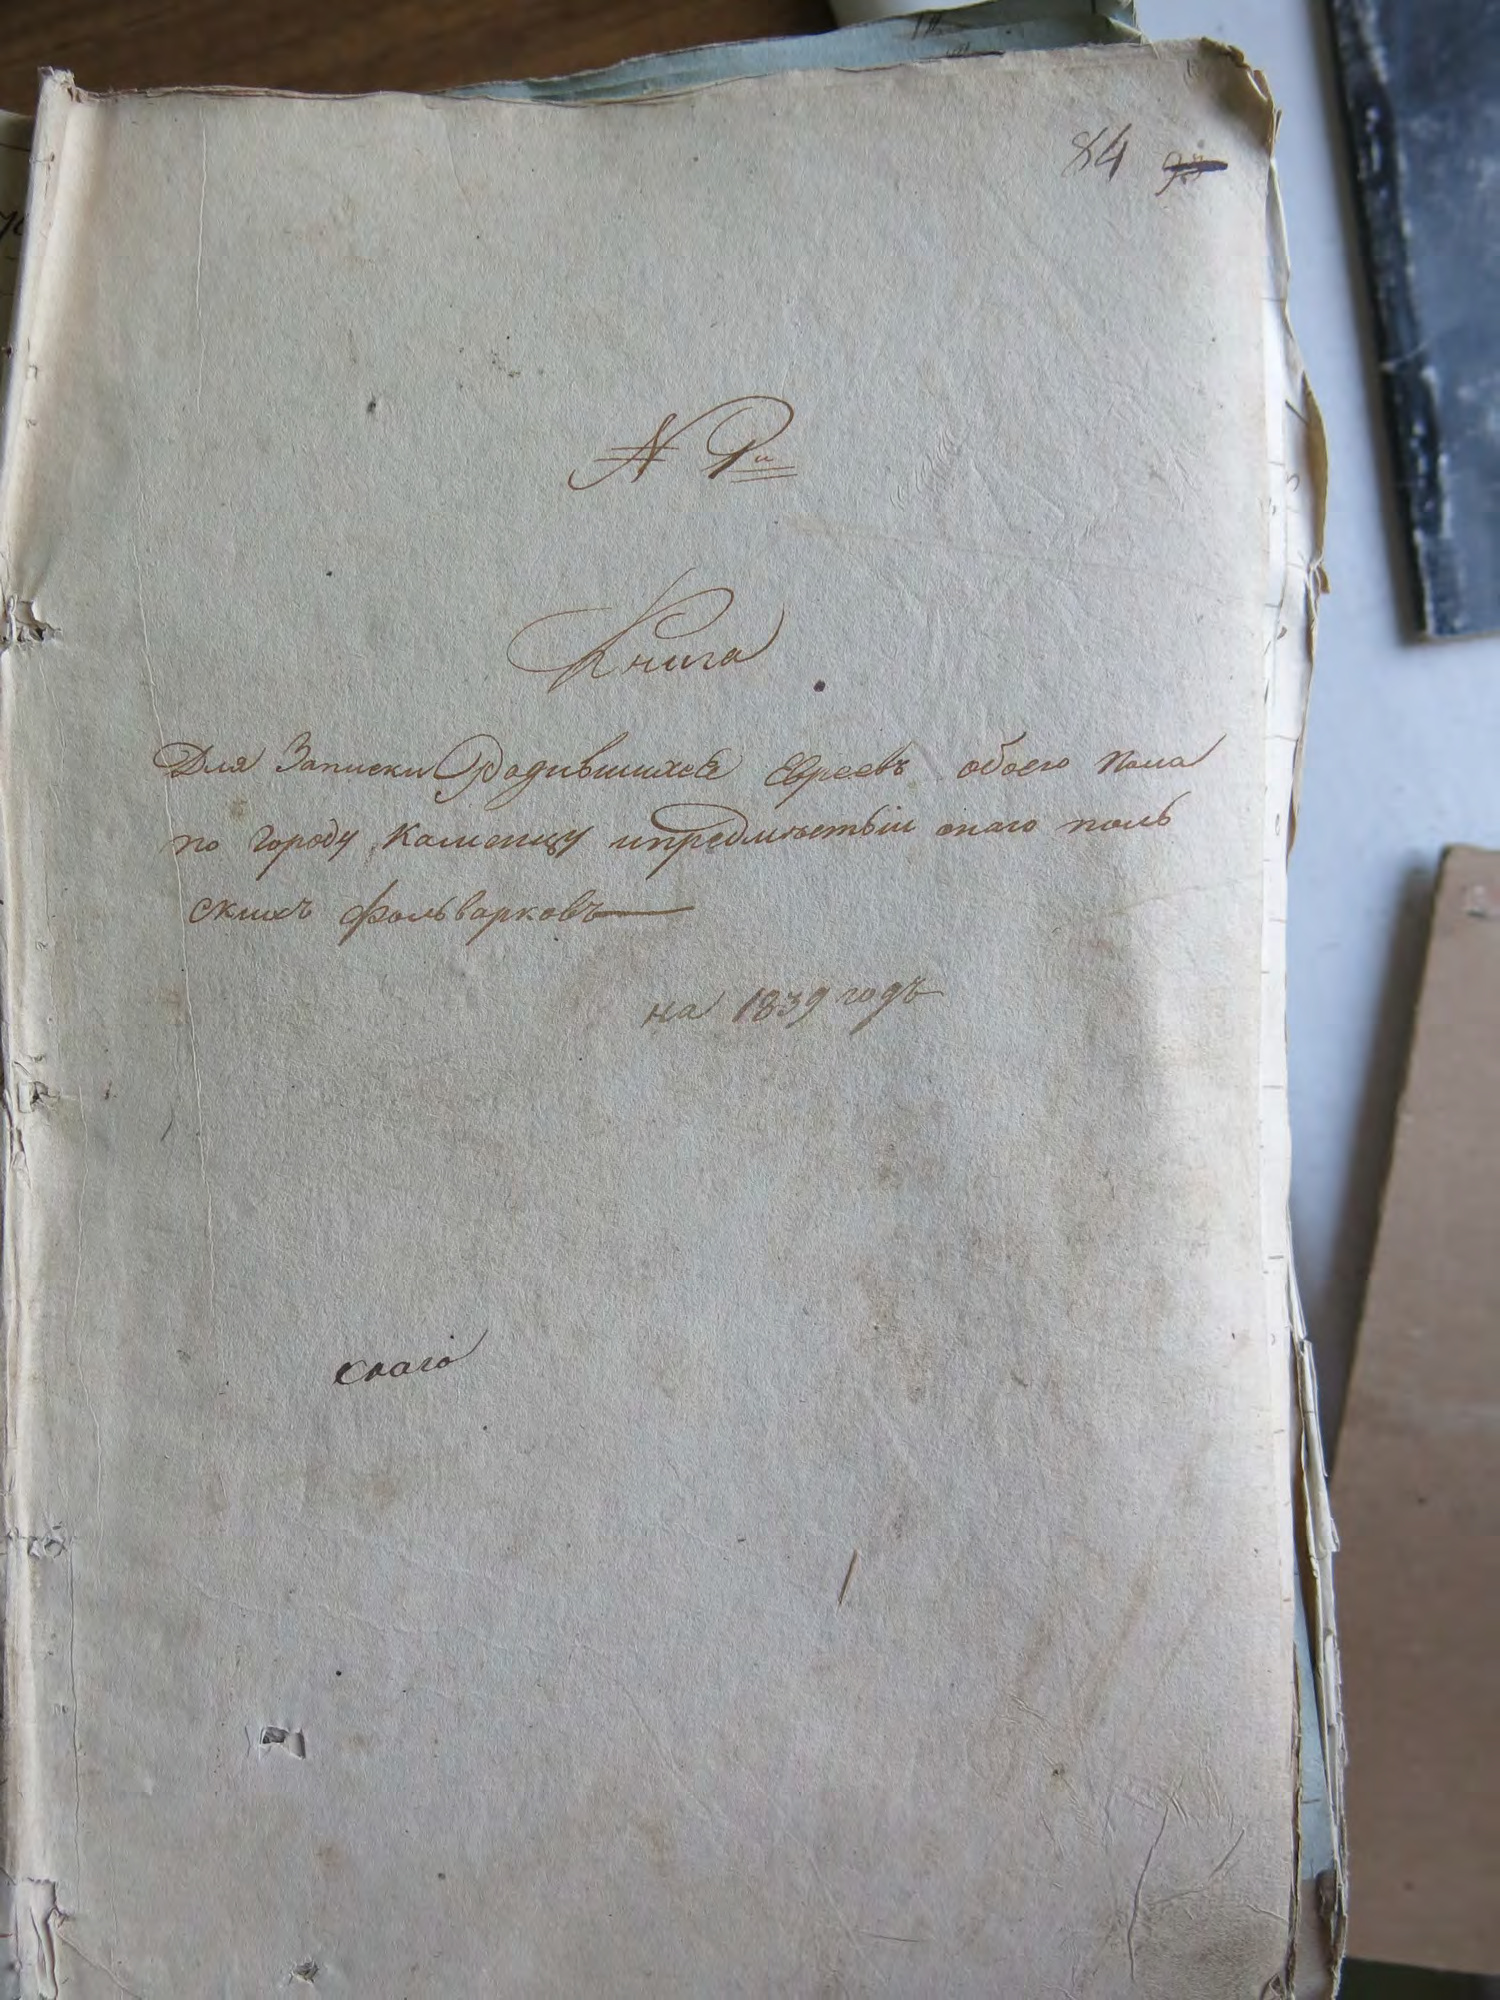 84
№ 1й
Книга
Для Записки Родившихся Евреевъ обоего пола
по городу Каменцу ипредмѣстьіи онаго поль
скихъ фольварковъ
на 1839 годъ